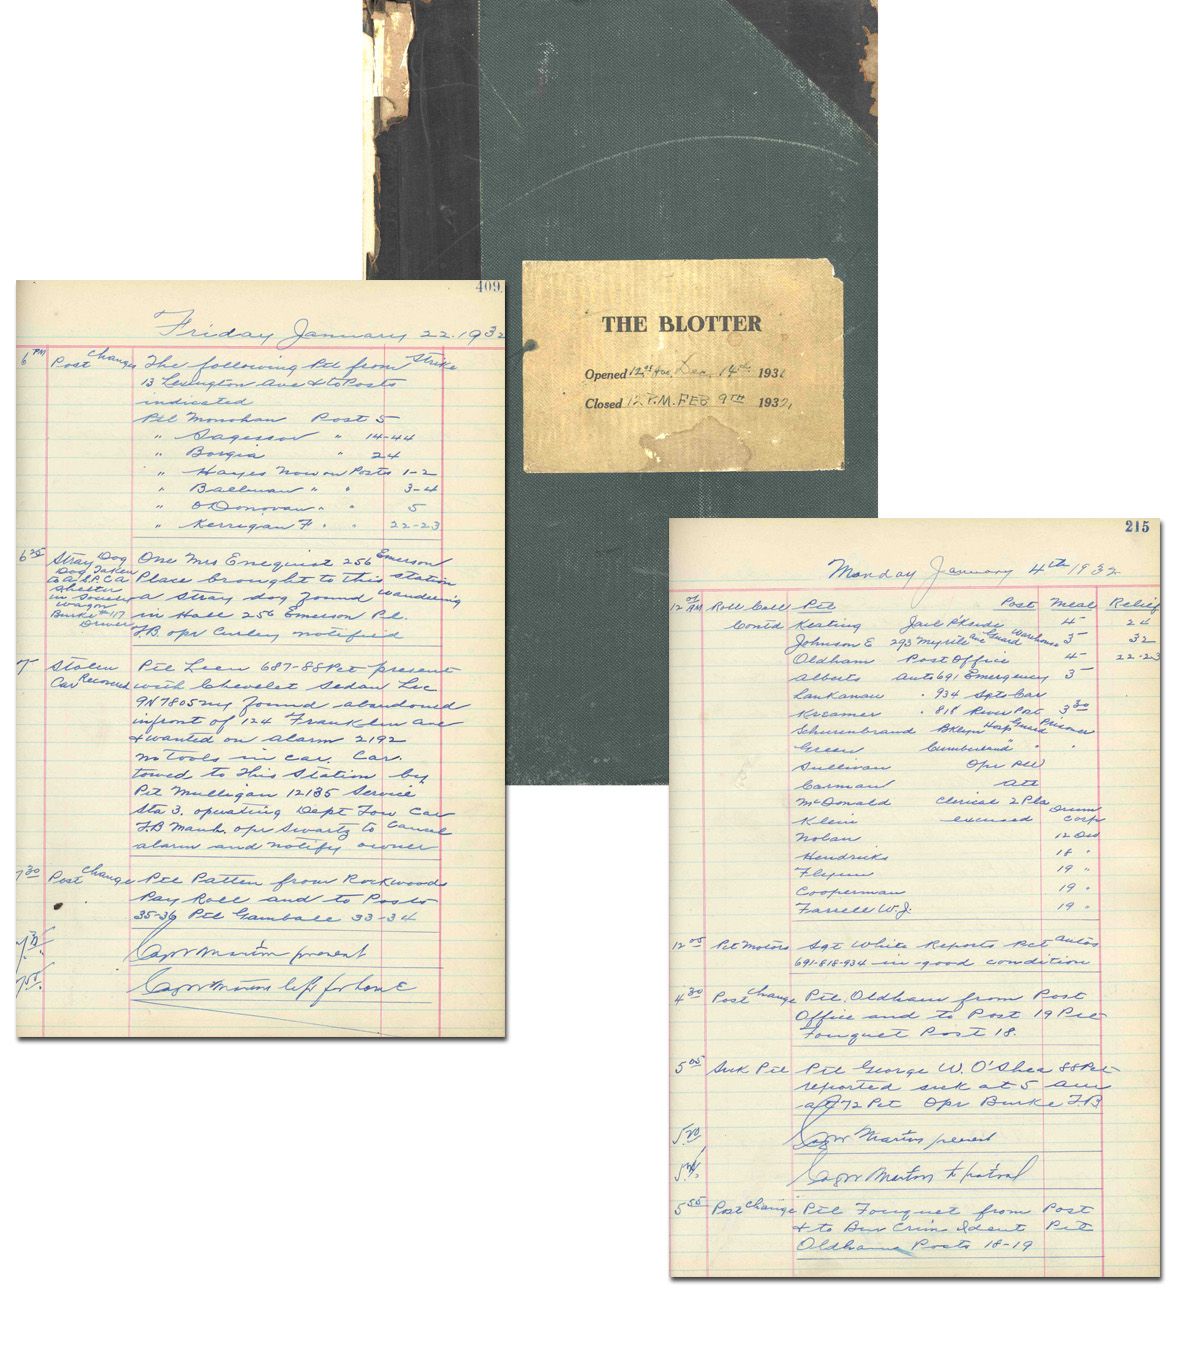 THE BLOTTER
Opened 12 Dec. 14th 1931
Closed 12 P.M. FEB 9TH 1932
409
Friday January 22. 1932
6 PM Post Change The following Ptl from Strike
13 Lexington Ave & to Posts
indicated
Ptl Monohan Post 5
" " 14-44
" Borgia " 24
" Hayes Now on Posts 1-2
" " " 3-4
" O'Donovan " " 5
" Kerrigan F " " 22-23
6 25 Stray Dog One Mrs Enequist 256 Emerson
Dog Taken Place brought to this station
to A.S.P.C.A a stray dog found wandering
Shelter in Hall 256 Emerson Pl.
in Society T.B. opr Curley notified
wagon
Burke #117
Driver
7 Stolen Ptl Leen 687-88 Pct present
Car Recovered with Chevelet Sedan Lic
9N7805 NY found abandoned
infront of 124 Franklin ave
& wanted on alarm 2192
no tools in car. Car.
towed to This Station by
Ptl Mulligan 12135 Service
Sta 3. operating Dept Tow Car
T.B Manh. opr Swartz to Cancel
alarm and notify owner
7 30 Post Change Ptl Patten from Rockwoods
Pay Roll and to Posts
35-36 Ptl Gambale 33-34
Capt present
7 55 Capt left for home
215
Monday January 4th 1932
12 01 AM Roll Call Ptl Post Meal Relief
Contd Keating Jail Pk side 4 24
Johnson E 293 Myrtle Ave Guard Warehouse 3 32
Oldham Post Office 4 22-23
Alberts Auto 691 Emergency 3
Lankanau " 934 Sgts Car
Kreamer " 818 River Post 3 30
Schurenbrand Bklyn Hosp Guard Prisoner
Green Cumberland " "
Sullivan Opr
Carman Att
McDonald Clerical 2 Pla
Klein excused Drum Corp
Nolan 12
Hendricks 18 "
Flynn 19 "
Cooperman 19 "
Farrell W.J. 19 "
12 05 Pct Motors Sgt White Reports Pct Autos
691-818-934 in good condition
4 30 Post Change Ptl. Oldham from Post
Office and to Post 19 Ptl
Fouquet Post 18.
5 05 Sick Ptl Ptl George W. O'Shea 88 Pct
reported sick at 5 am
at 72 Pct Opr Burke T.B
5 20 Capt present
Capt to patrol
5 55 Post Change Ptl Fouquet from Post
& to Bur Crim Ident Ptl
Oldham Posts 18-19